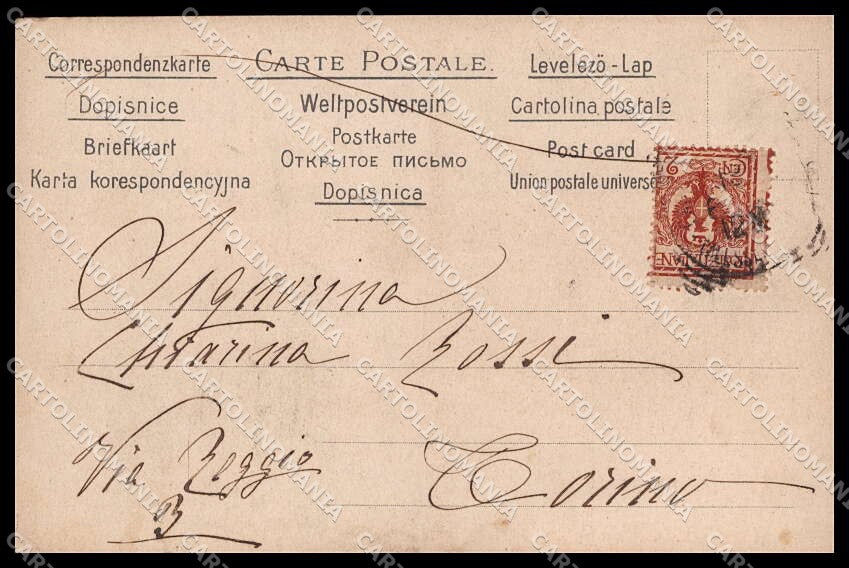 Correspondenzkarte
CARTE POSTALE.
Levelezö-Lap
Dopisnice
Weltpostverein
Cartolina postale
Briefkaart
Postkarte
Post card
Karta korespondencyjna
Открытое письмо
Union postale universe
Dopisnica
Signorina
Rossi
Via Reggio
Torino
CARTOLINOMANIA